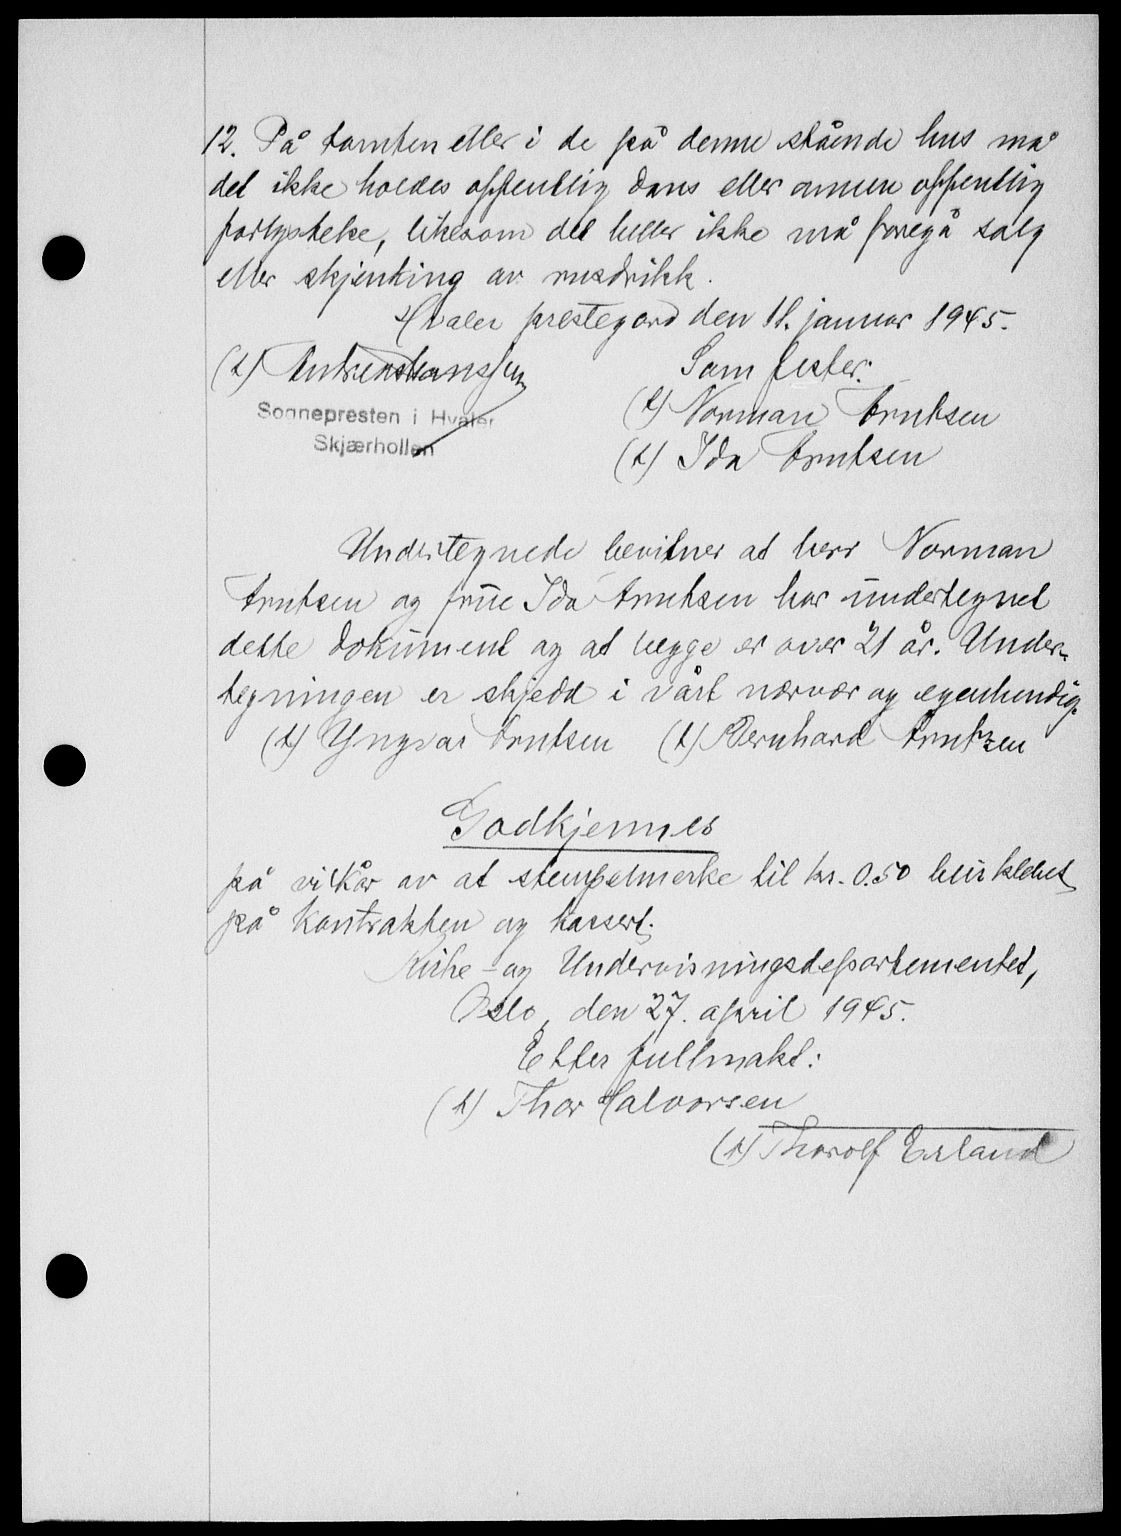 12. På tomten eller i de på denne stående hus må
det ikke holdes offentlig dans eller annen offentlig
forlystelse, likesom det heller ikke må foregå salg
eller skjenking av rusdrikk.
Hvaler prestegård den 11. januar 1945.
(s) Som fester:
Sognepresten i Hvaler (s) Norman Arntsen
Skjærhollen (s) Ida Arntsen
Undertegnede bevitner at herr Norman
Arntsen og frue Ida Arntsen har undertegnet
dette dokument og at begge er over 21 år. Under-
tegningen er skjedd i vårt nærvær og egenhendig.
(s) Yngvar Arntsen (s) Bernhard Arntzen
Godkjennes
på vilkår av at stempelmerke til kr. 0.50 blir klebet
på kontrakten og kassert.
Kirke- og Undervisningsdepartementet,
Oslo, den 27. april 1945.
Etter fullmakt:
(s) Thor Halvorsen
(s) Thorolf Erland